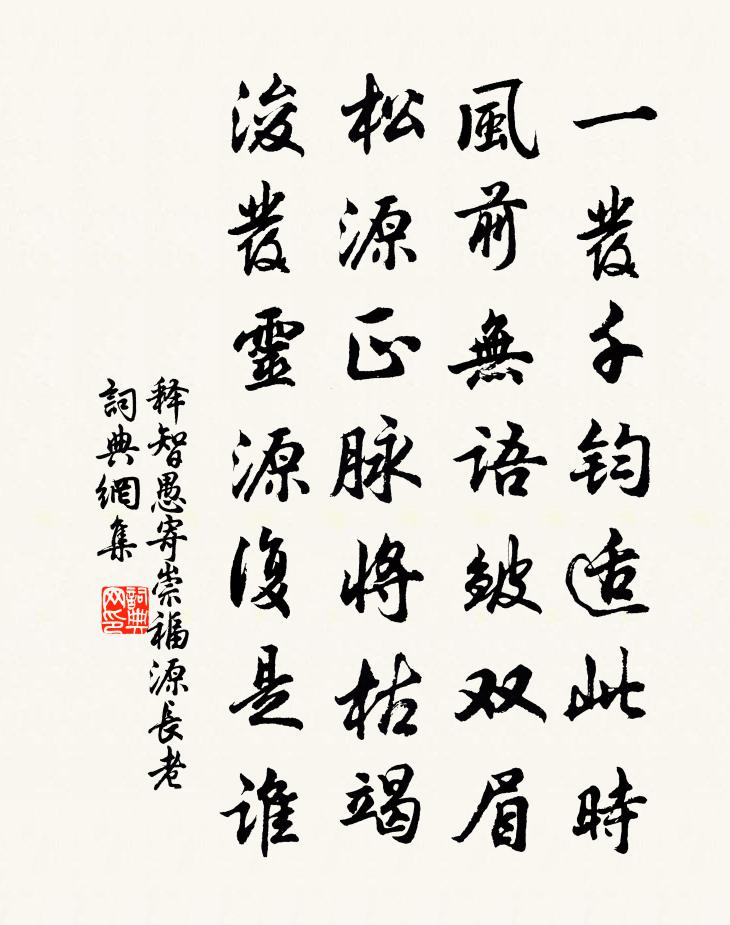 一發千鈞适此時
風前無語皺双眉
松源正脉將枯竭
浚發靈源復是誰
释智愚寄崇福源長老
詞典網集
詞典网印